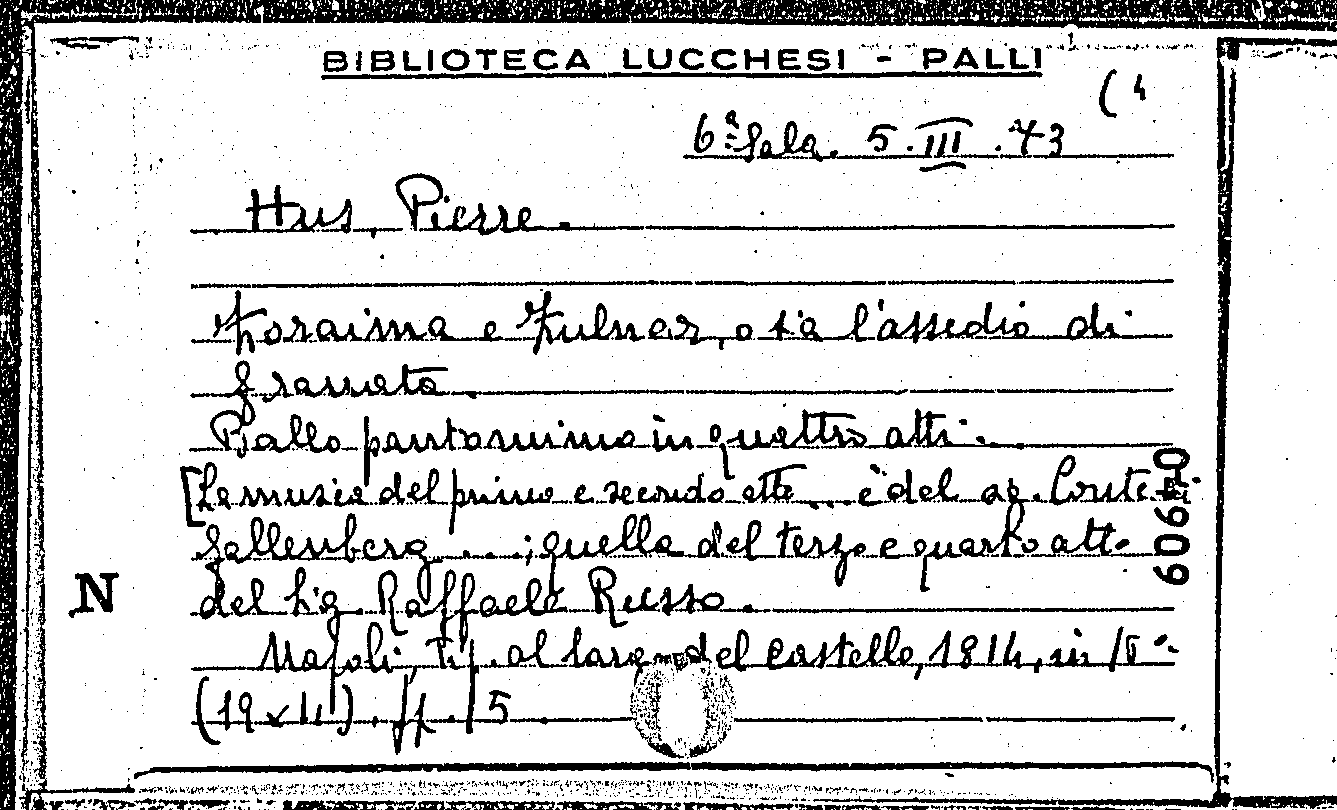 BIBLIOTECA LUCCHESI - PALLI
(4
6ª Sala. 5.III.43
Hus, Pierre.
Zoraima e Zulnar, o sia l'assedio di
Granata.
Ballo pantomimo in quattro atti.
[La musica del primo e secondo atto... è del sig. Conte
Gallenberg ...; quella del terzo e quarto atto
del Sig. Raffaele Russo.
Napoli, Tip. al largo del Castello, 1814, in 16°.
(19x11). pp. 15
N